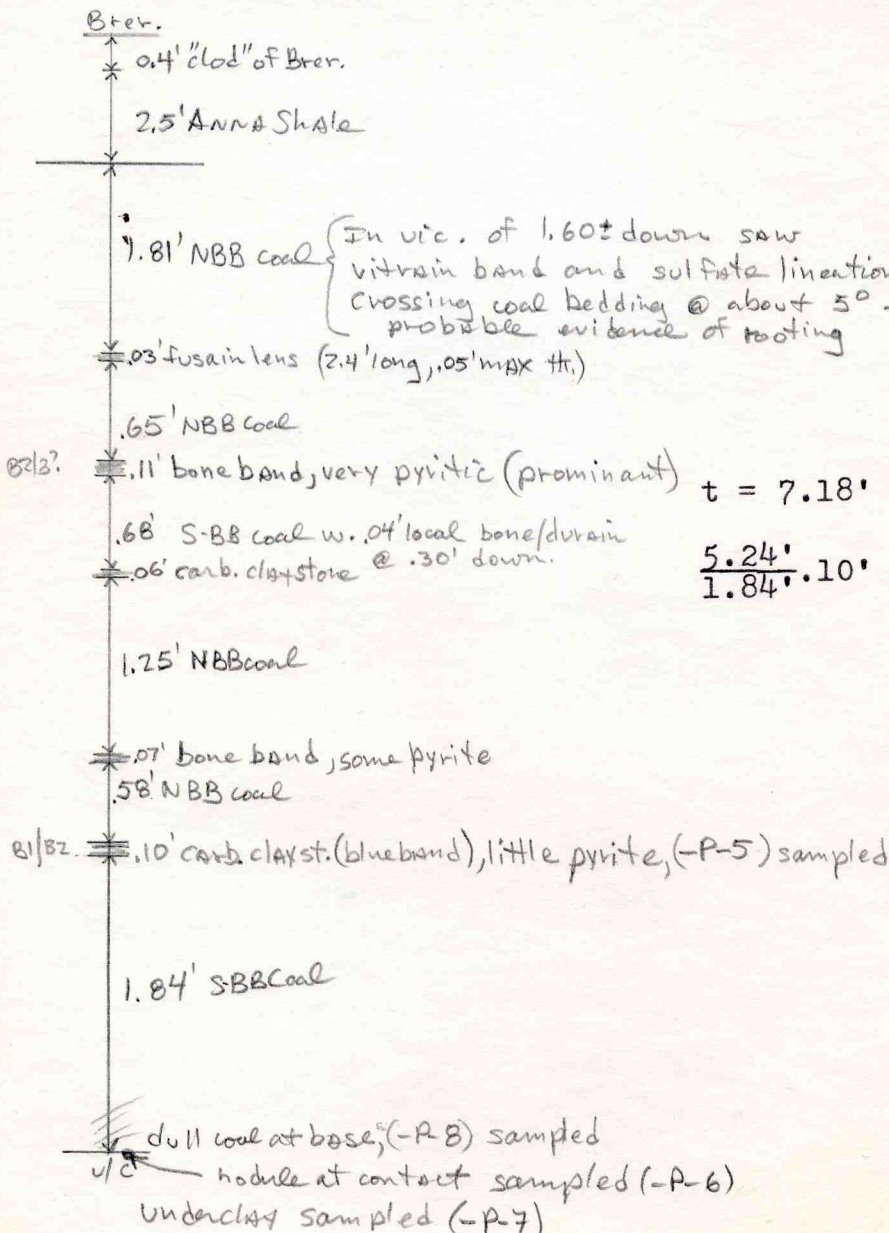 Brer.
0.4' "clod" of Brer.
2.5' ANNA Shale
1.81' NBB coal
In vic. of 1.60± down saw
vitrain band and sulfate lineation
Crossing coal bedding @ about 5° -
probable evidence of rooting
.03' fusain lens (2.4' long, .05' max th.)
.65' NBB coal
B2/3? .11' bone band, very pyritic (prominant)
t = 7.18'
.68' S-BB coal w. .04' local bone/durain
@ .30' down.
.06' carb. claystone
5.24'
1.84' .10'
1.25' NBB coal
.07' bone band, some pyrite
.58' NBB coal
B1/B2 .10' carb. clayst. (blueband), little pyrite, (-P-5) sampled
1.84' S-BB Coal
dull coal at base, (-P-8) sampled
u/c
nodule at contact sampled (-P-6)
underclay sampled (-P-7)